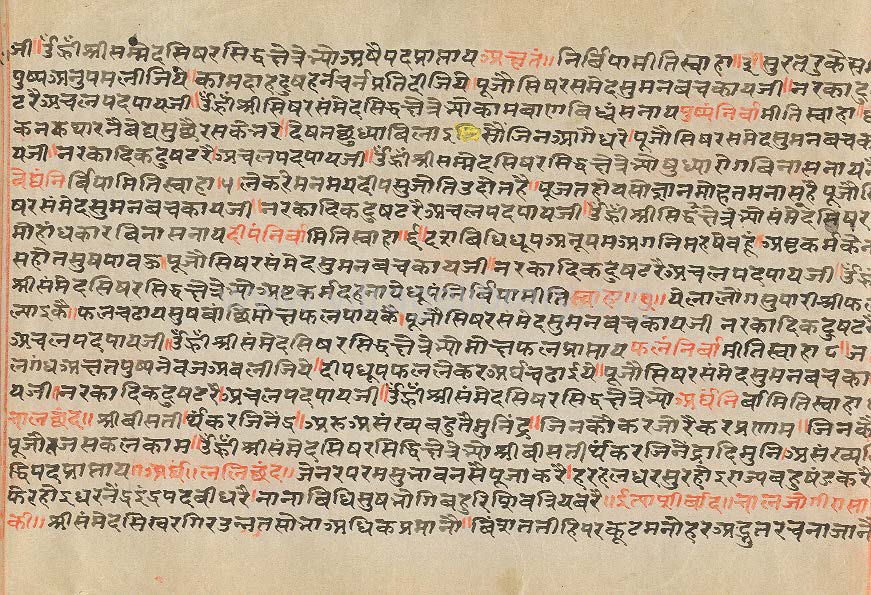 जी॥ उँह्रीँ श्री सम्मेदसिषरसिद्धक्षेत्रेभ्यो अषैपदप्राप्ताय अक्षतं॥ निर्विपामीति स्वाहा॥३॥ सुरतरुके सम
पुष्प अनुपम लीजिये॥ कामदाह दुषहर्न चर्न प्रति दीजिये॥ पूजौ सिषरसमेद सुमनबचकाय जी॥ नरकादु
टरै अचल पद पाय जी॥ उँह्रीँ श्री सिषरसंमेदसिद्धक्षेत्रेभ्यो कामबाणविध्वंसनाय पुष्पंनिर्वामीति स्वाहा॥
कनकथार नैबेद्य सुष्टरस के नरे॥ देषत छुध्या बिलाऽ सौ जिन आगै धरे॥ पूजौ सिषरसंमेद सुमनबचक
यजी॥ नरकादिक दुषटरै अचल पद पाय जी॥ उँह्रीँ श्री सम्मेदसिषरसिद्धक्षेत्रेभ्यो षुध्यारोगबिनासनाय नै
बेद्यंनिर्विपामिति स्वाहा॥५॥ लेकरि मनमय दीप सुजोति उदोत है॥ पूजत होय सो ज्ञान मोहतम नास है पूजौ सि
षरसंमेद सुमनबचकाय जी॥ नरकादिक दुषटरै अचल पद पाय जी॥ उँह्रीँ श्री सिद्धक्षेत्रेभ्यो संमेदसिषर
मोहांधकारबिनासनाय दीपंनिर्वामिति स्वाहा॥६॥ दराबिधि धूप अनूपम अगनि मह षेबहूं॥ अष्टकर्म केन
स होत सुष पावऊ॥ पूजौ सिषरसंमेद सुमनबचकाय जी॥ नरकादिक दुषटरै अचल पद पाय जी॥ उँह्रीँ
श्री संमेदसिषरसिद्धक्षेत्रेभ्यो अष्टकर्मदहनाय धूपंनिर्विपामीति स्वाहा॥७॥ येला लोंग सुपारी श्रीफल
लाऽकै॥ फल चढाय सुष बांछि मोक्षफल पायकै॥ पूजौ सिषरसंमेद सुमनबचकाय जी नरकादिक दुषटरै
अचल पद पाय जी॥ उँह्रीँ श्री संमेदसिषरसिद्धक्षेत्रेभ्यो मोक्षफलप्राप्ताय फलंनिर्वामीति स्वाहा ८॥ ज
लगंध अक्षत पुष्प नेवज अबलीजिये॥ दीप धूप फल लेकर अर्घ चढाऽये॥ पूजौ सिषरसंमेद सुमनबचका
यजी॥ नरकादिक दुषटरै अचल पद पाय जी॥ उँह्रीँ श्री संमेदसिषरसिद्धक्षेत्रेभ्यो अर्घनिर्वामिति स्वाहा॥
चाल छंद॥ श्री बीस तीर्थकर जिनेंद्र॥ अरु असंख्य बहुतै मुनिंद्र॥ जिनकौ कर जोर कर प्रणाम॥ जिनकौ
पूजौ सकल काम॥ उँह्रीँ श्री संमेदसिषरसिद्धक्षेत्रेभ्यो श्री बीस तीर्थकर जिनेंद्रादि मुनि असंख्य
द्विपदप्राप्ताय॥ अर्घ॥ ललि छंद॥ जे नर परम सुभावन सै पूजा करै॥ हरहलधर सुर होऽ राज्य बहु षंड करै
फेर होऽ धरनेंद्र इंद्रपदबी धरै॥ नाना बिधि सुष भोगि बहुरि शिव त्रिय बरै॥ ईत्याशीर्वाद॥ चाल जोगीरासा
की॥ श्री संमेदसिखर गिर उंनत सोभा अधिक प्रमानौ॥ बिंशत तीहि पर कूट मनोहर अद्भुत रचना जानौ